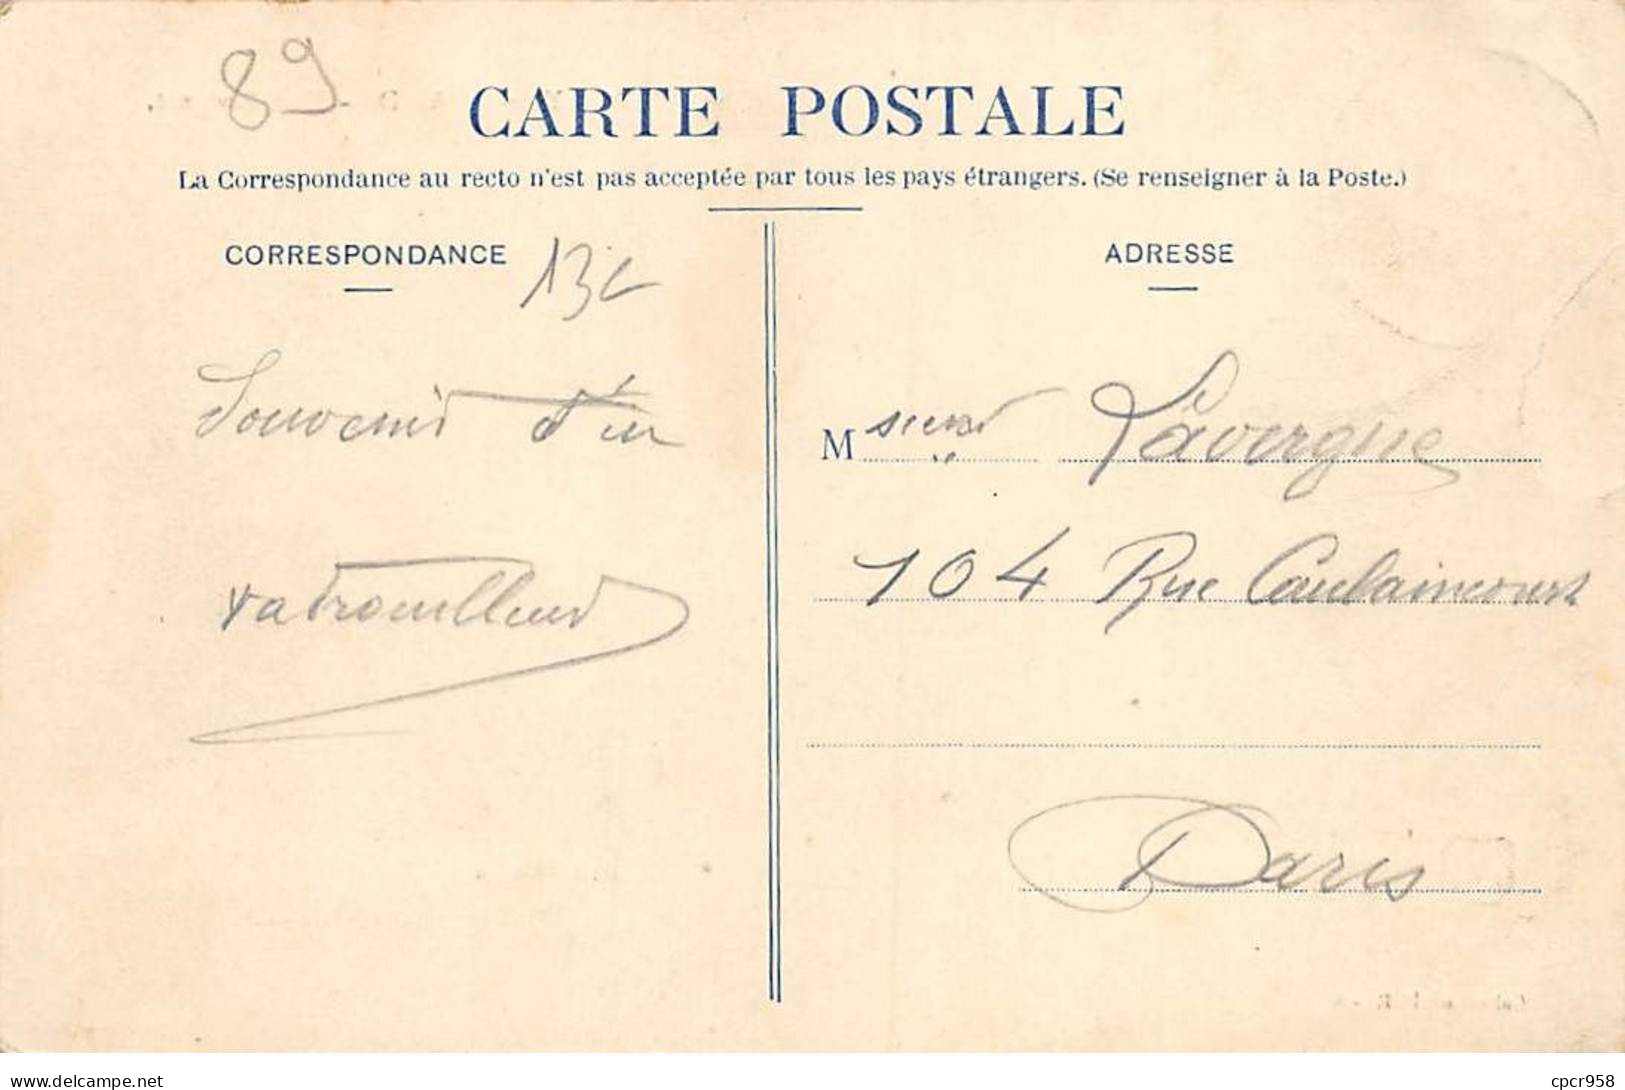 89
CARTE POSTALE
La Correspondance au recto n'est pas acceptée par tous les pays étrangers. (Se renseigner à la Poste.)
CORRESPONDANCE
ADRESSE
Souvenir d'un
patrouilleur
Msieur Lavergne
104 Rue Caulaincourt
Paris
delcampe.net
cpcr958